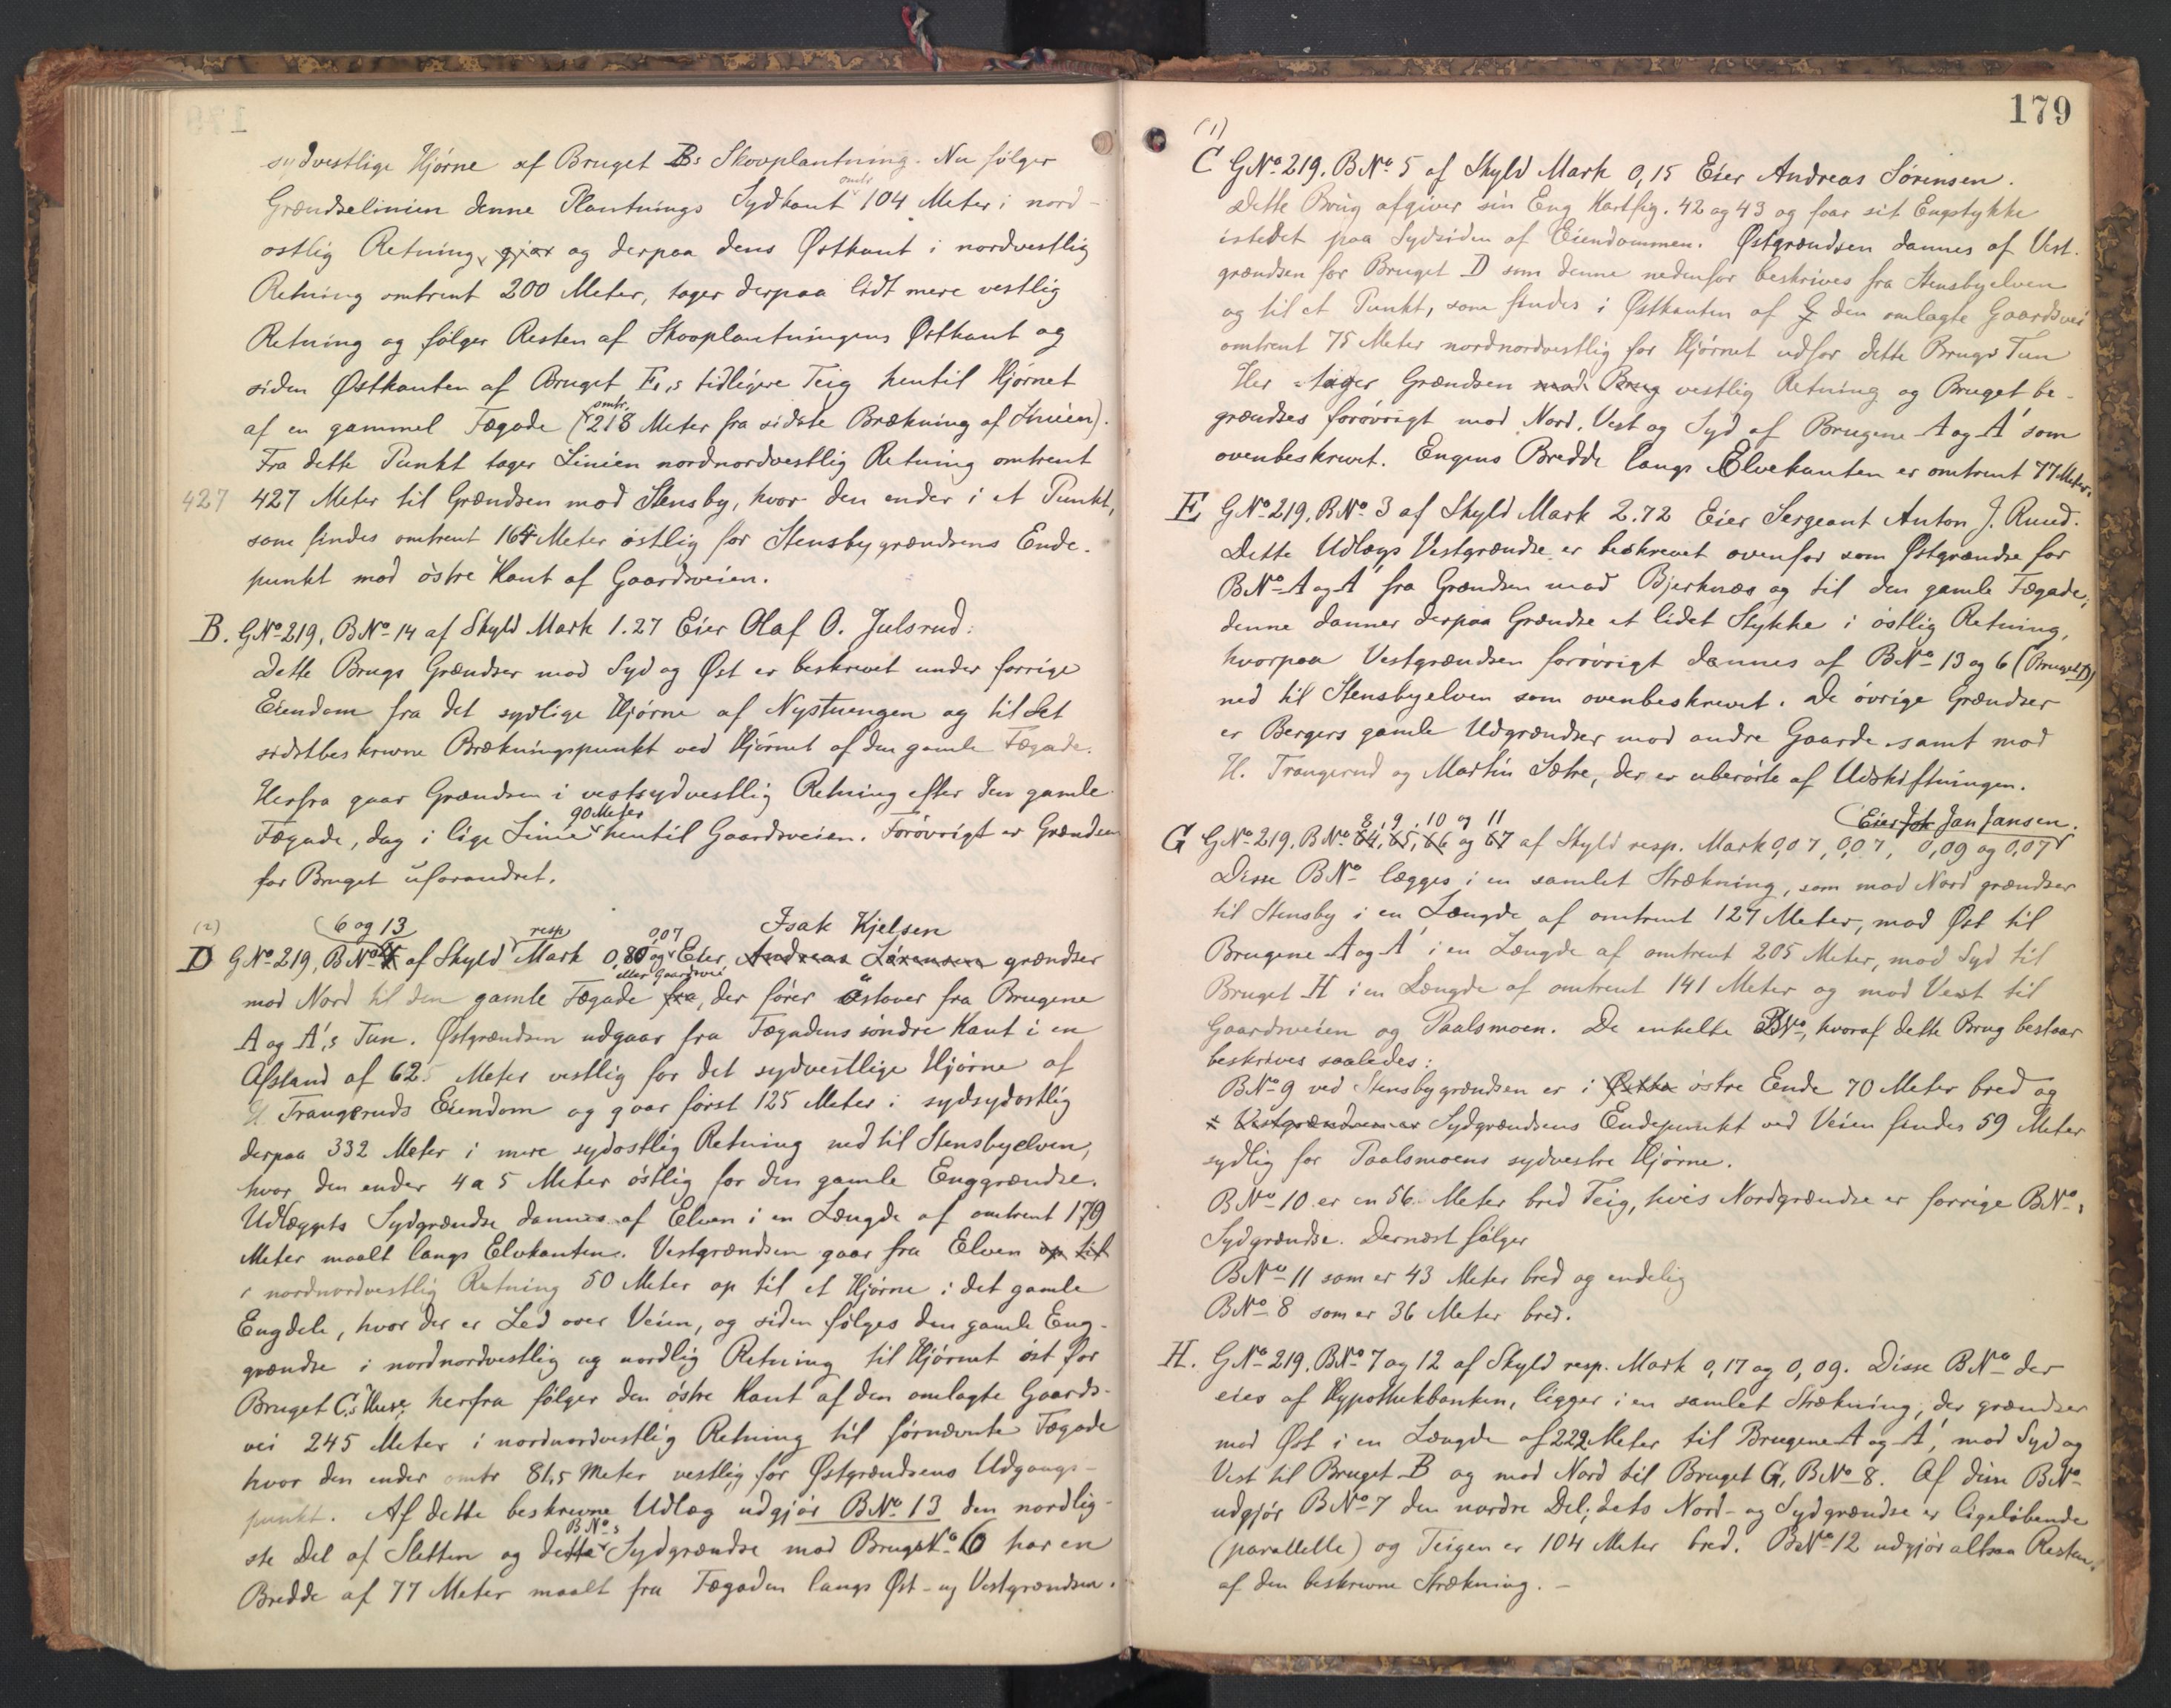 sydvestlige Hjørne af Bruget Bs Skovplantning. Nu følger
Grændselinien denne Plantnings Sydkant omtr 104 Meter i nord-
ostlig Retning, gjør og derpaa dens Østkant i nordvestlig
Retning omtrent 200 Meter, tager derpaa lidt mere vestlig
Retning og følger Resten af Skovplantningens Østkant og
siden Østkanten af Bruget F,s tidligere Teig hentil Hjørnet
af en gammel Fægade (omtr. 218 Meter fra sidste Brækning af Linien).
Fra dette Punkt tager Linien nordnordvestlig Retning omtrent
427 427 Meter til Grændsen mod Stensby, hvor den ender i et Punkt,
som findes omtrent 164 Meter østlig for Stensbygrændsens Ende-
punkt mod østre Kant af Gaardsveien.
B. GNo 219, BNo 14 af Skyld Mark 1.27 Eier Olaf O. Julsrud:
Dette Brugs Grændser mod Syd og Øst er beskrevet under forrige
Eiendom fra det sydlige Hjørne af Nystuengen og til det
sidstbeskrevne Brækningspunkt ved Hjørnet af den gamle Fægade.
Herfra gaar Grændsen i vestsydvestlig Retning efter den gamle
Fægade, dog i lige Linie 90 Meter hentil Gaardsveien. Forøvrigt er Grændsen
for Bruget uforandret.
(2) 6 og 13 resp 0,07 Isak Kjelsen
D GNo 219, BNo af Skyld Mark 0,80 og Eier Andreas Sørensen grændser
mod Nord til den gamle Fægade eller Gaardsvei fra, der fører østover fra Brugene
A og A',s Tun. Østgrændsen udgaar fra Fægadens søndre Kant i en
Afstand af 62 Meter vestlig for det sydvestlige Hjørne af
H Trangeruds Eiendom og gaar først 125 Meter i sydsydostlig
derpaa 332 Meter i mere sydostlig Retning ned til Stensbyelven,
hvor den ender 4 a 5 Meter østlig for den gamle Enggrændse.
Udlæggets Sydgrændse dannes af Elven i en Længde af omtrent 179
Meter maalt langs Elvekanten. Vestgrændsen gaar fra Elven op til
i nordnordvestlig Retning 50 Meter op til et Hjørne i det gamle
Engdele, hvor der er Led over Veien, og siden følges den gamle Eng-
grændse i nordnordvestlig og nordlig Retning til Hjørnet øst for
Bruget C,s Huse; herfra følger den østre Kant af den omlagte Gaards-
vei 245 Meter i nordnordvestlig Retning til førnævnte Fægade
hvor den ender omtr 81,5 Meter vestlig for Østgrændsens Udgangs-
punkt. Af dette beskrevne Udlæg udgjør BNo 13 den nordlig-
ste Del af Sletten og dette BNo s Sydgrændse mod Brugs No 6 har en
Bredde af 77 Meter maalt fra Fægaden langs Øst- og Vestgrændsen.
179
(1)
C GNo 219. BNo 5 af Skyld Mark 0,15 Eier Andreas Sørensen.
Dette Brug afgiver sin Eng Kartfig. 42 og 43 og faar sit Engstykke
istedet paa Sydsiden af Eiendommen. Østgrændsen dannes af Vest-
grændsen for Bruget D som denne nedenfor beskrives fra Stensbyelven
og til et Punkt, som findes i Østkanten af den omlagte Gaardsvei
omtrent 75 Meter nordnordvestlig for Hjørnet udfor dette Brugs Tun
Her tager Grændsen mod Brug vestlig Retning og Bruget be-
grændses forøvrigt mod Nord, Vest og Syd af Brugene A og A' som
ovenbeskrevet. Engens Bredde langs Elvekanten er omtrent 77 Meter.
E GNo 219. BNo 3 af Skyld Mark 2.72 Eier Sergeant Anton J. Ruud.
Dette Udlægs Vestgrændse er beskrevet ovenfor som Østgrændse for
BNo A og A' fra Grændsen mod Bjerknæs og til den gamle Fægade;
denne danner derpaa Grændse et lidet Stykke i østlig Retning,
hvorpaa Vestgrændsen forøvrigt dannes af BNo 13 og 6 (Bruget D)
ned til Stensbyelven som ovenbeskrevet. De øvrige Grændser
er Bergers gamle Udgrændser mod andre Gaarde samt mod
H. Trangerud og Martin Sætre, der er uberørte af Udskiftningen.
8, 9, 10 og 11 Eier Jan Jansen.
G GNo 219. BNo 64, 65, 66 og 67 af Skyld resp. Mark 0,07, 0,07, 0,09 og 0,07
Disse BNo lægges i en samlet Strækning, som mod Nord grændser
til Stensby i en Længde af omtrent 127 Meter, mod Øst til
Brugene A og A' i en Længde af omtrent 205 Meter, mod Syd til
Bruget H i en Længde af omtrent 141 Meter og mod Vest til
Gaardsveien og Paalsmoen. De enkelte BNo, hvoraf dette Brug bestaar
beskrives saaledes:
BNo 9 ved Stensbygrændsen er i Østre østre Ende 70 Meter bred og
Vestgrændsen er Sydgrændsens Endepunkt ved Veien findes 59 Meter
sydlig for Paalsmoens sydvestre Hjørne.
BNo 10 er en 56 Meter bred Teig, hvis Nordgrændse er forrige BNo s
Sydgrændse. Dernæst følger
BNo 11 som er 43 Meter bred og endelig
BNo 8 som er 36 Meter bred.
H. GNo 219. BNo 7 og 12 af Skyld resp. Mark 0,17 og 0,09. Disse BNo der
eies af Hypothekbanken, ligger i en samlet Strækning, der grændser
mod Øst i en Længde af 222 Meter til Brugene A og A', mod Syd og
Vest til Bruget B og mod Nord til Bruget G, BNo 8. Af disse BNo
udgjør BNo 7 den nordre Del; dets Nord- og Sydgrændse er ligeløbende
(parallelle) og Teigen er 104 Meter bred. BNo 12 udgjør altsaa Resten
af den beskrevne Strækning. -